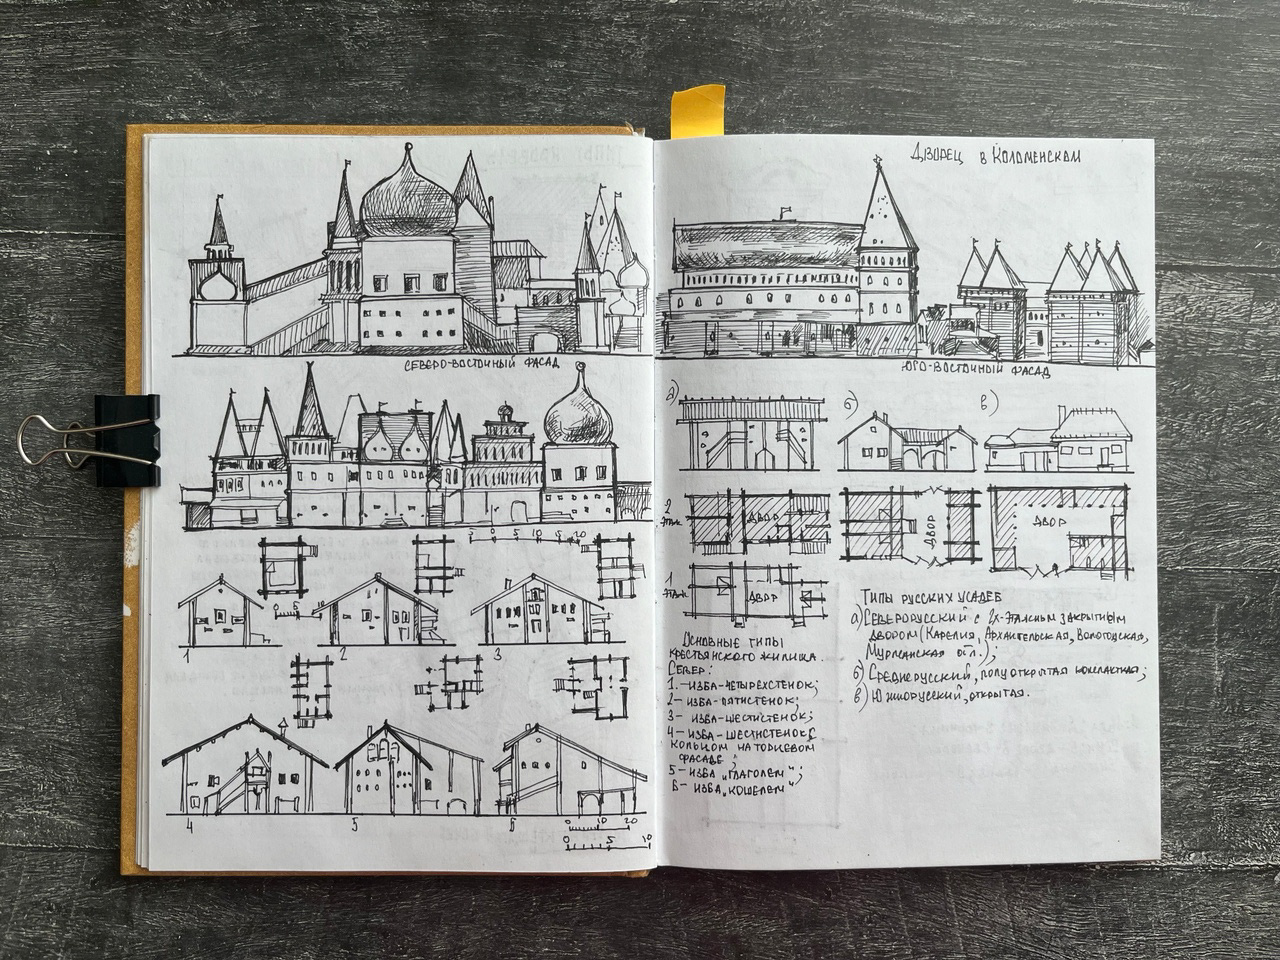 Дворец в Коломенском
Северо-восточный фасад
Юго-восточный фасад
0 5 10 15 20
0 5 10
1
2
3
4
5
6
0 10 20
0 5 10
а)
б)
в)
2 этаж
двор
двор
двор
1 этаж
двор
Основные типы
крестьянского жилища.
Север:
1.-изба-четырёхстенок;
2-изба-пятистенок;
3-изба-шестистенок;
4-изба-шестистенок с
кольцом на торцевом
фасаде;
5-изба "глаголем";
6-изба "кошелем"
Типы русских усадеб
а) Северорусский с 2х-этажным закрытым
двором (Карелия, Архангельская, Вологодская,
Мурманская обл.);
б) Среднерусский, полуоткрытая компактная;
в) Южнорусский, открытая.